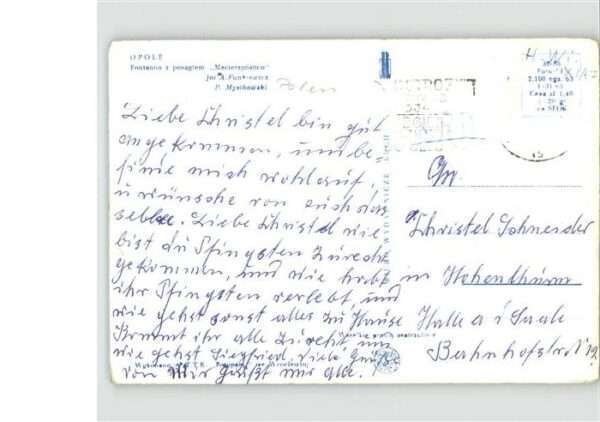 OPOLE
Fontanna z posągiem „Macierzyństwo"
fot. A. Funkiewicz
P. Mystkowski
Polen
Liebe Christel bin gut
angekommen, und be
finde mich wohlauf,
u wünsche von euch das
selbe. Liebe Christel wie
bist du Pfingsten zurecht
gekommen, und wie habt
ihr Pfingsten verlebt, und
wie gehst sonst alles zu Hause
Kommt ihr alle zurecht und
wie gehst Siegfried. Viele Grüße
von mir grüßt mir alle.
Christel Schneider
in Hohenthurm
Halle a/Saale
Bahnhofstr.